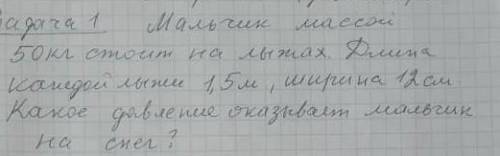 Задача 1 Мальчик массой
50кг стоит на лыжах. Длина
каждой лыжи 1,5м, ширина 12см.
Какое давление оказывает мальчик
на снег?